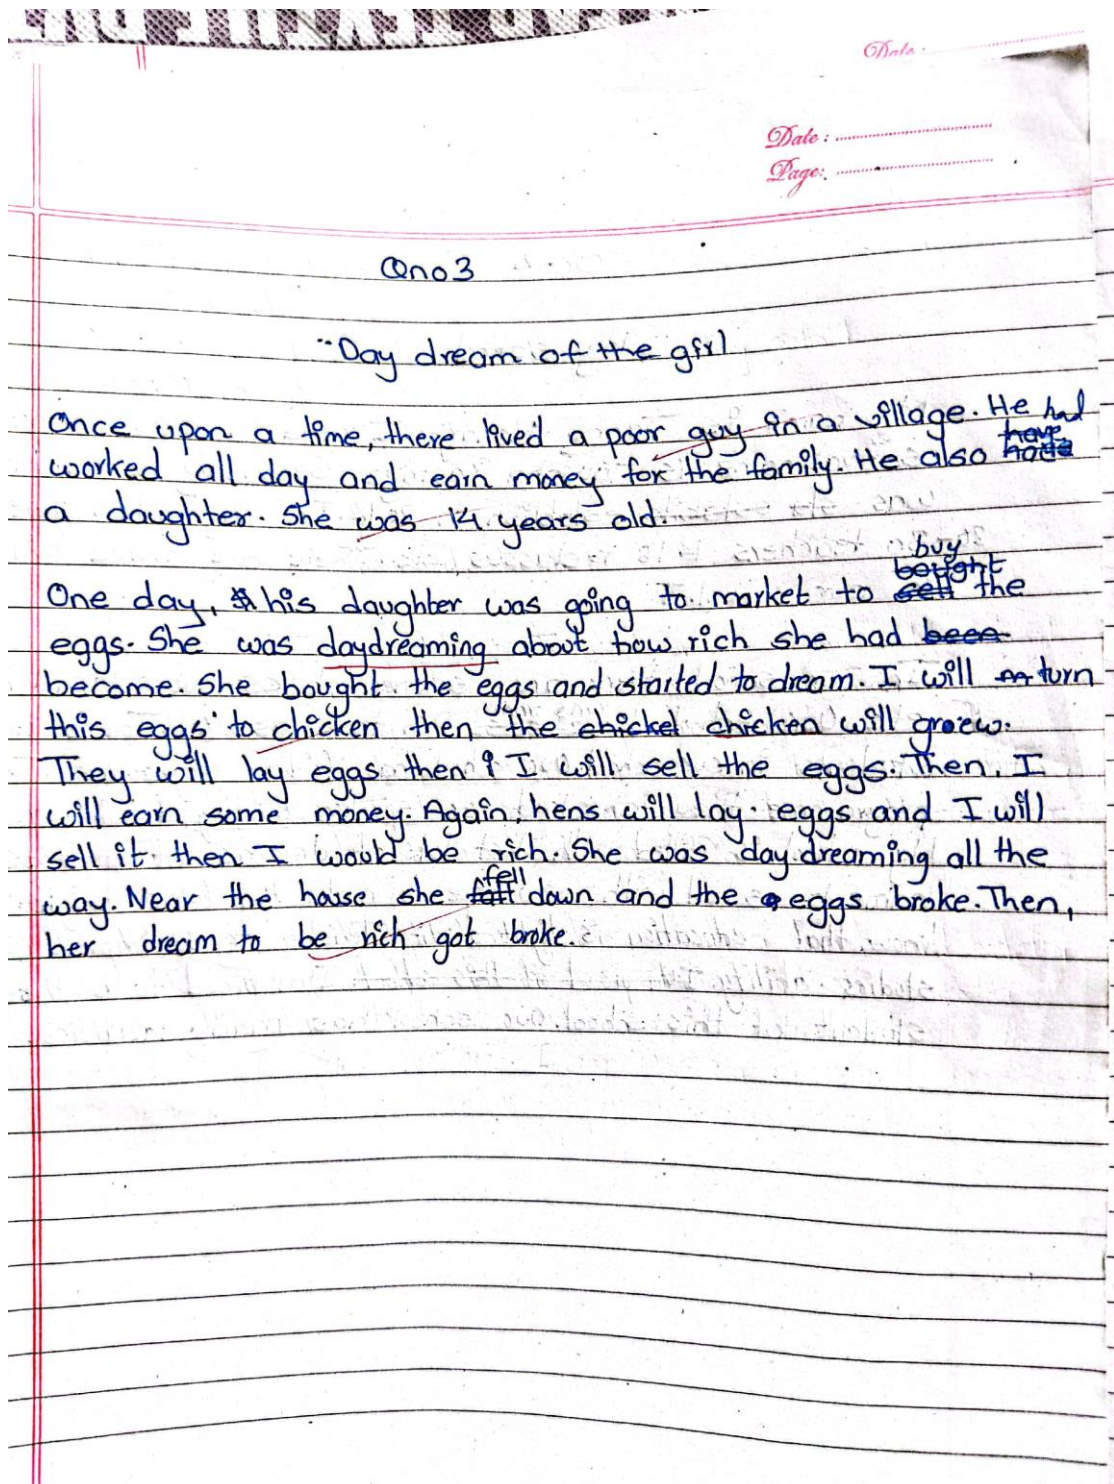 Date:
Date:
Page:
Qno3
"Day dream of the girl
Once upon a time, there lived a poor guy in a village. He had
worked all day and earn money for the family. He also have
a daughter. She was 14 years old.
One day, his daughter was going to market to buy the
eggs. She was daydreaming about how rich she had
become. She bought the eggs and started to dream. I will turn
this eggs to chicken then the chicken will groew.
They will lay eggs then I will sell the eggs. Then, I
will earn some money. Again, hens will lay eggs and I will
sell it then I would be rich. She was day dreaming all the
way. Near the house she fell down and the eggs broke. Then,
her dream to be rich got broke.